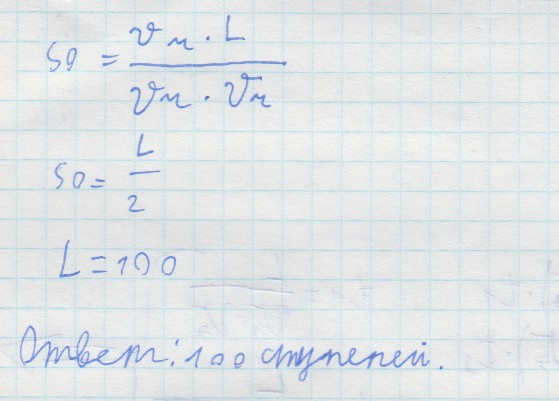 50 = vм · L / vм · vм
50 = L / 2
L = 100
Ответ: 100 ступеней.